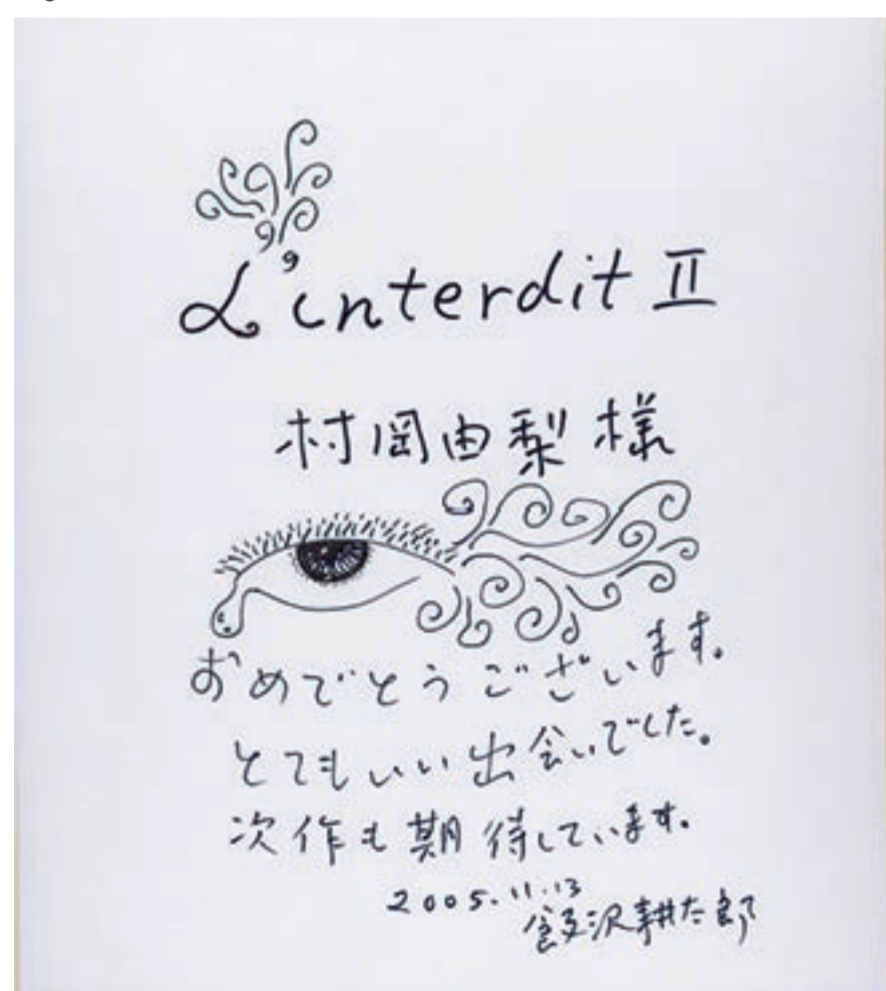 L'interdit II
村岡由梨様
おめでとうございます。
とてもいい出会いでした。
次作も期待しています。
2005.11.13
飯沢耕太郎